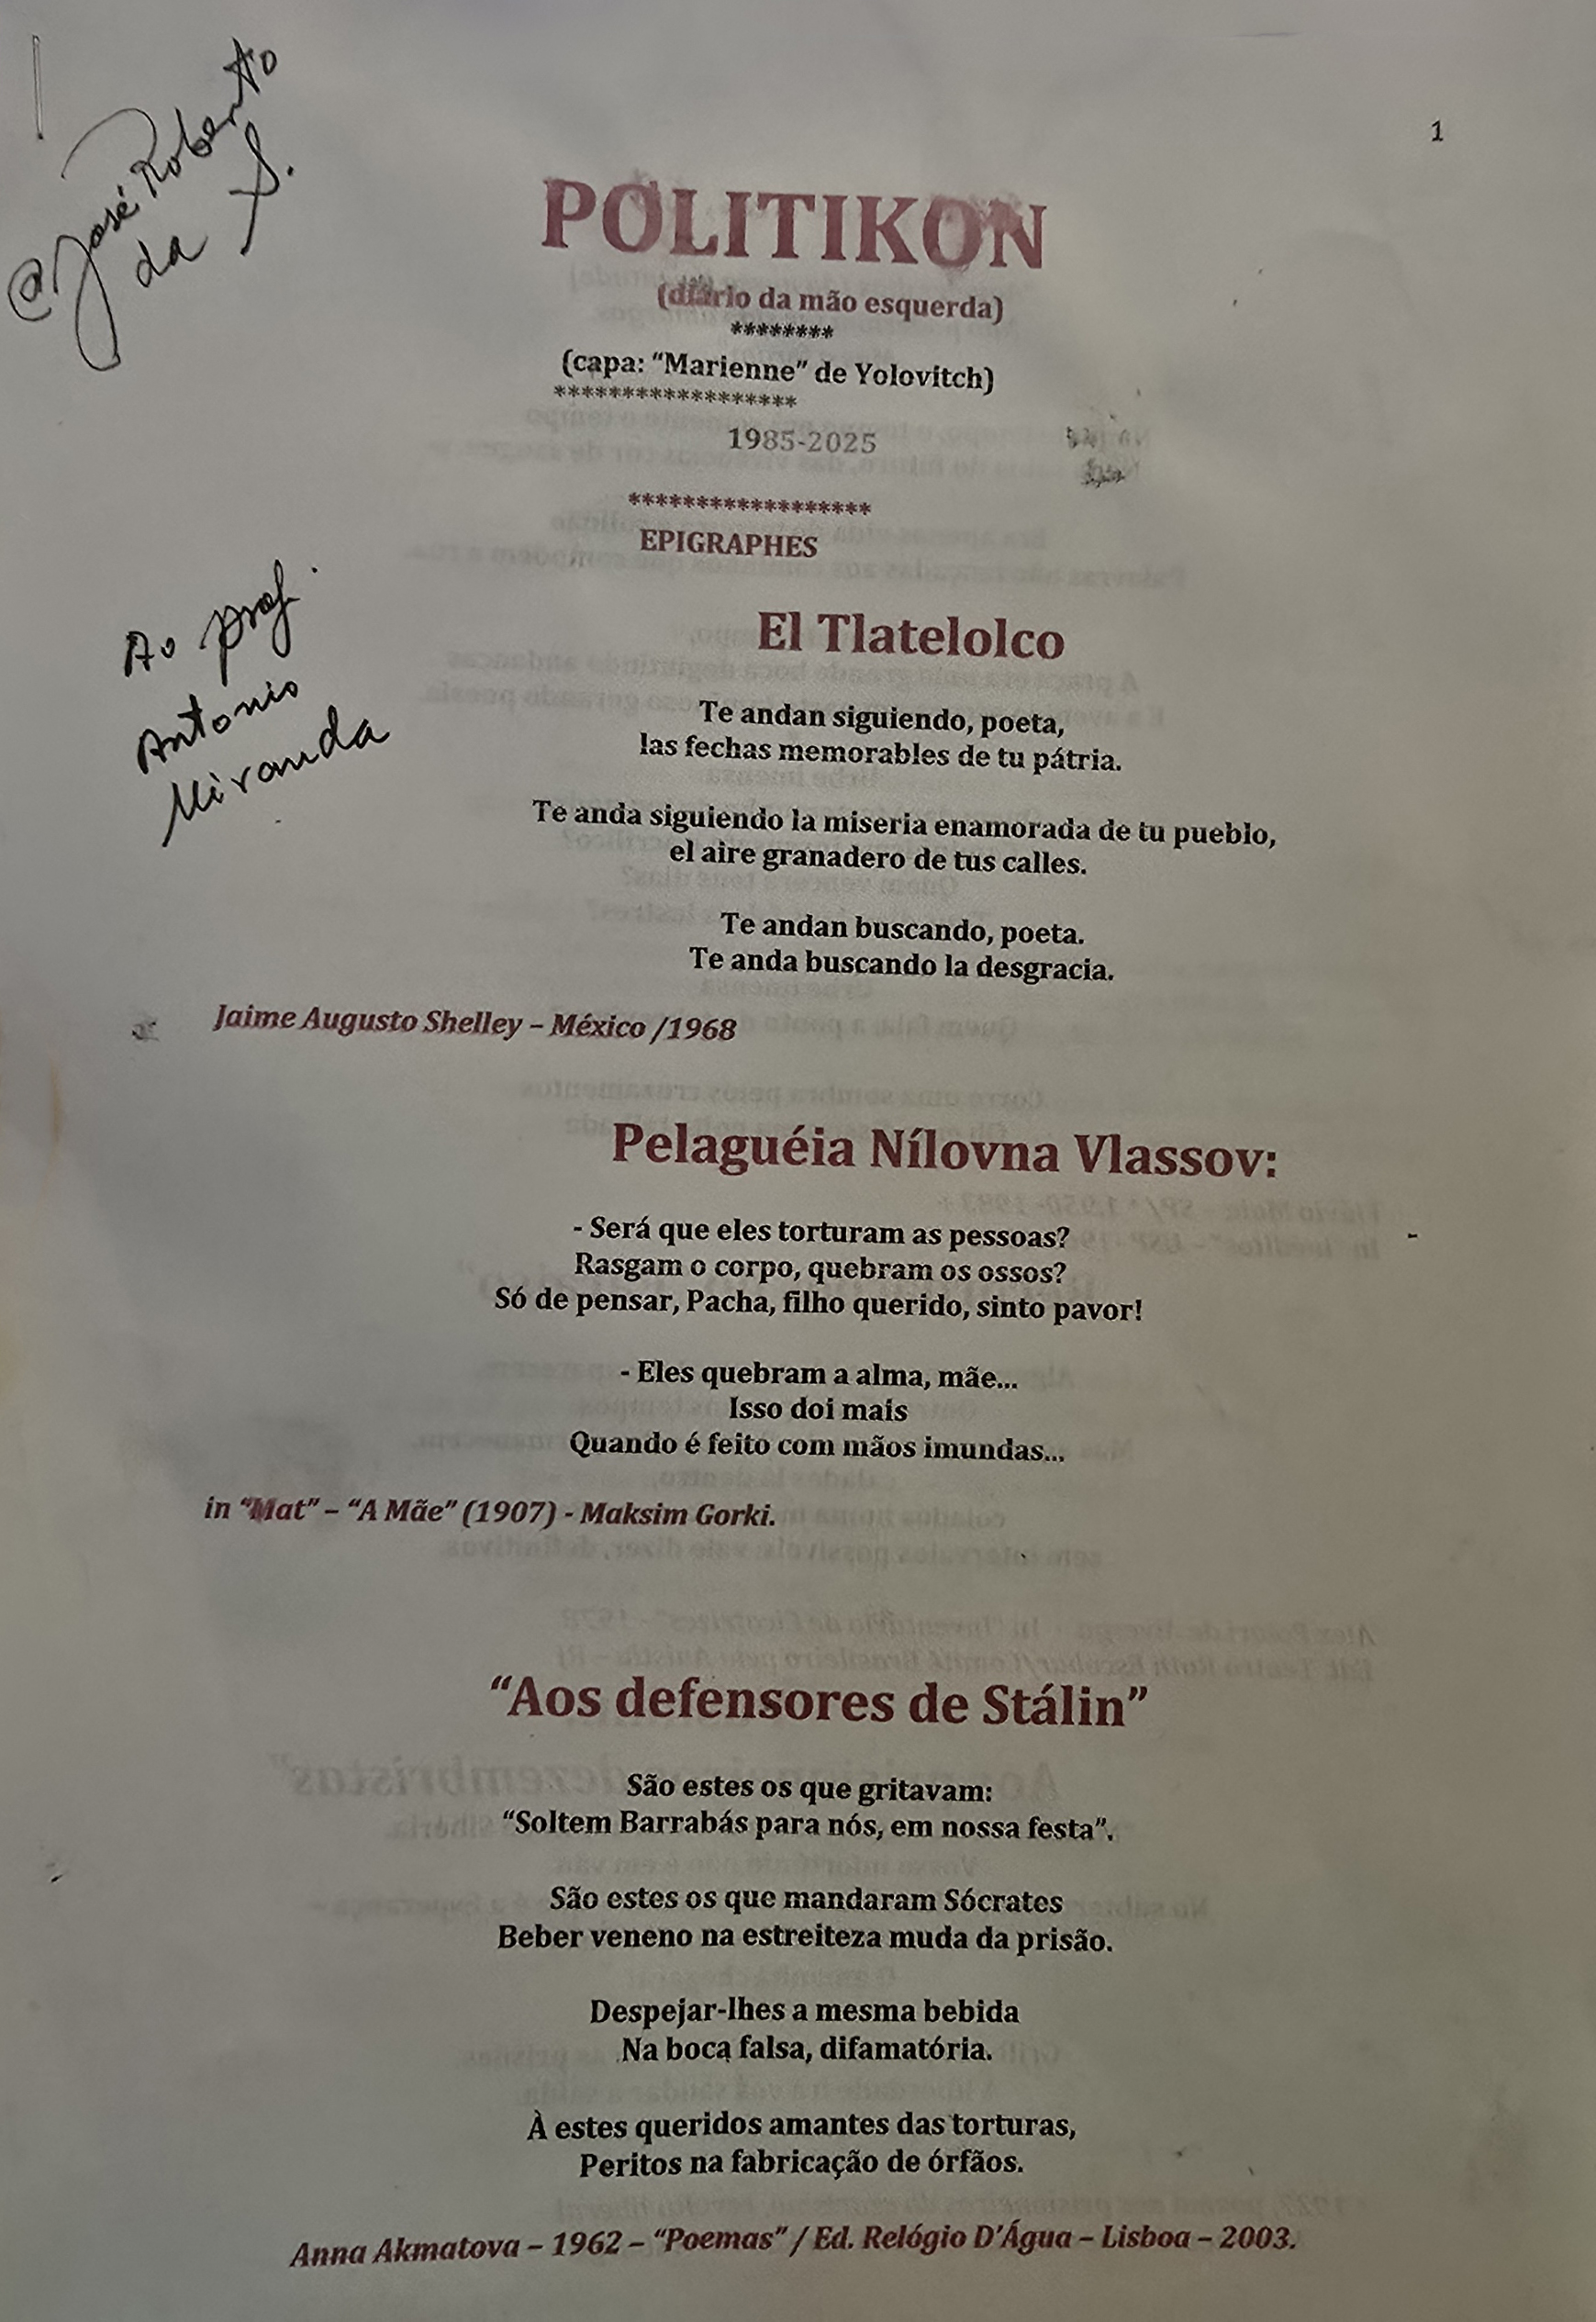 @José Roberto
da S.
1
POLITIKON
(diário da mão esquerda)
********
(capa: “Marienne” de Yolovitch)
******************
1985-2025
******************
EPIGRAPHES
Ao prof.
Antonio
Miranda
El Tlatelolco
Te andan siguiendo, poeta,
las fechas memorables de tu pátria.
Te anda siguiendo la miseria enamorada de tu pueblo,
el aire granadero de tus calles.
Te andan buscando, poeta.
Te anda buscando la desgracia.
Jaime Augusto Shelley – México /1968
Pelaguéia Nílovna Vlassov:
- Será que eles torturam as pessoas?
Rasgam o corpo, quebram os ossos?
Só de pensar, Pacha, filho querido, sinto pavor!
- Eles quebram a alma, mãe...
Isso doi mais
Quando é feito com mãos imundas...
in “Mat” – “A Mãe” (1907) - Maksim Gorki.
“Aos defensores de Stálin”
São estes os que gritavam:
“Soltem Barrabás para nós, em nossa festa”.
São estes os que mandaram Sócrates
Beber veneno na estreiteza muda da prisão.
Despejar-lhes a mesma bebida
Na boca falsa, difamatória.
À estes queridos amantes das torturas,
Peritos na fabricação de órfãos.
Anna Akmatova – 1962 – “Poemas” / Ed. Relógio D’Água – Lisboa – 2003.